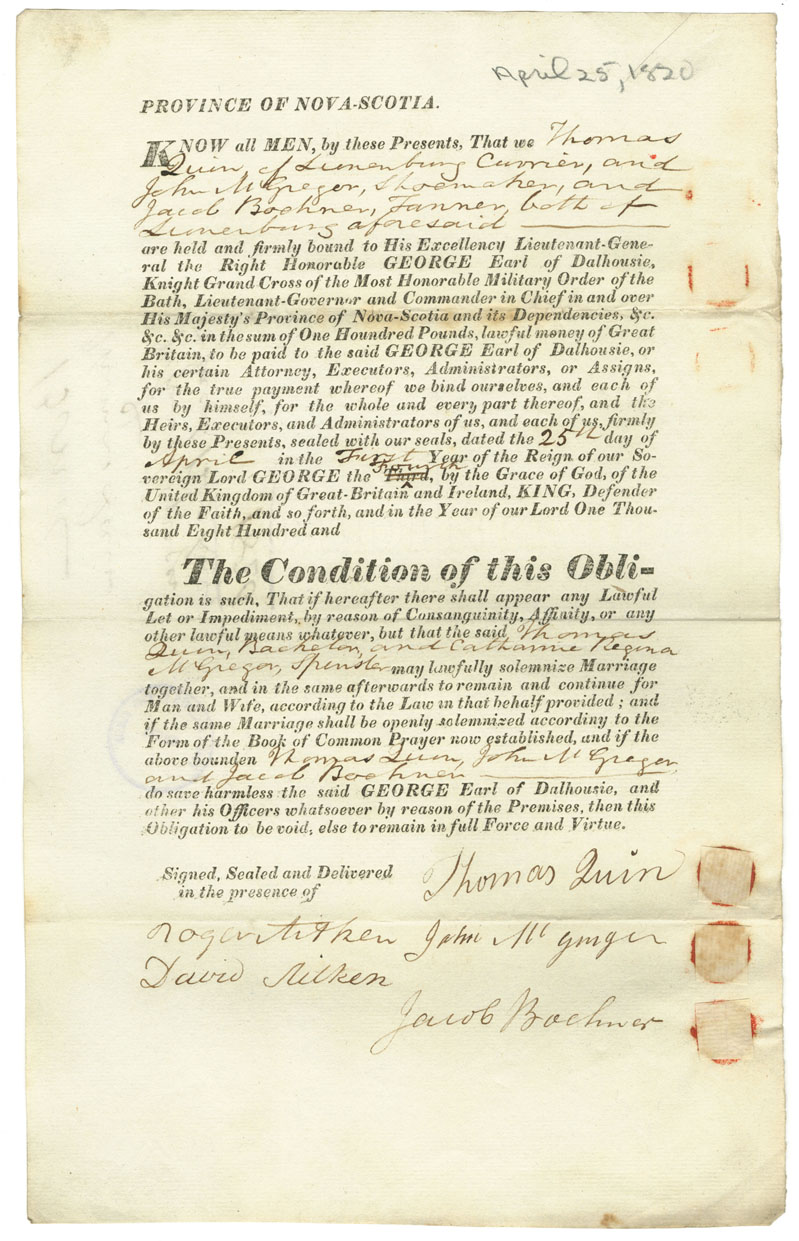 April 25, 1820
PROVINCE OF NOVA-SCOTIA.
KNOW all MEN, by these Presents, That we Thomas
Quin of Lunenburg Currier, and
John McGregor, Shoemaker, and
Jacob Boehner, Tanner, both of
Lunenburg aforesaid
are held and firmly bound to His Excellency Lieutenant-Gene-
ral the Right Honorable GEORGE Earl of Dalhousie,
Knight Grand Cross of the Most Honorable Military Order of the
Bath, Lieutenant-Governor and Commander in Chief in and over
His Majesty's Province of Nova-Scotia and its Dependencies, &c.
&c. &c. in the sum of One Houndred Pounds, lawful money of Great
Britain, to be paid to the said GEORGE Earl of Dalhousie, or
his certain Attorney, Executors, Administrators, or Assigns,
for the true payment whereof we bind ourselves, and each of
us by himself, for the whole and every part thereof, and the
Heirs, Executors, and Administrators of us, and each of us, firmly
by these Presents, sealed with our seals, dated the 25th day of
April in the First Year of the Reign of our So-
vereign Lord GEORGE the Third Fourth, by the Grace of God, of the
United Kingdom of Great-Britain and Ireland, KING, Defender
of the Faith, and so forth, and in the Year of our Lord One Thou-
sand Eight Hundred and
The Condition of this Obli-
gation is such, That if hereafter there shall appear any Lawful
Let or Impediment, by reason of Consanguinity, Affinity, or any
other lawful means whatever, but that the said Thomas
Quin, Bachelor, and Catharine Regina
McGregor, Spinster may lawfully solemnize Marriage
together, and in the same afterwards to remain and continue for
Man and Wife, according to the Law in that behalf provided; and
if the same Marriage shall be openly solemnized accordiny to the
Form of the Book of Common Prayer now established, and if the
above bounden Thomas Quin, John McGregor,
and Jacob Boehner
do save harmless the said GEORGE Earl of Dalhousie, and
other his Officers whatsoever by reason of the Premises, then this
Obligation to be void, else to remain in full Force and Virtue.
Signed, Sealed and Delivered
in the presence of
Thomas Quin
Roger Aitken John Mc gregor
David Aitken
Jacob Boehner